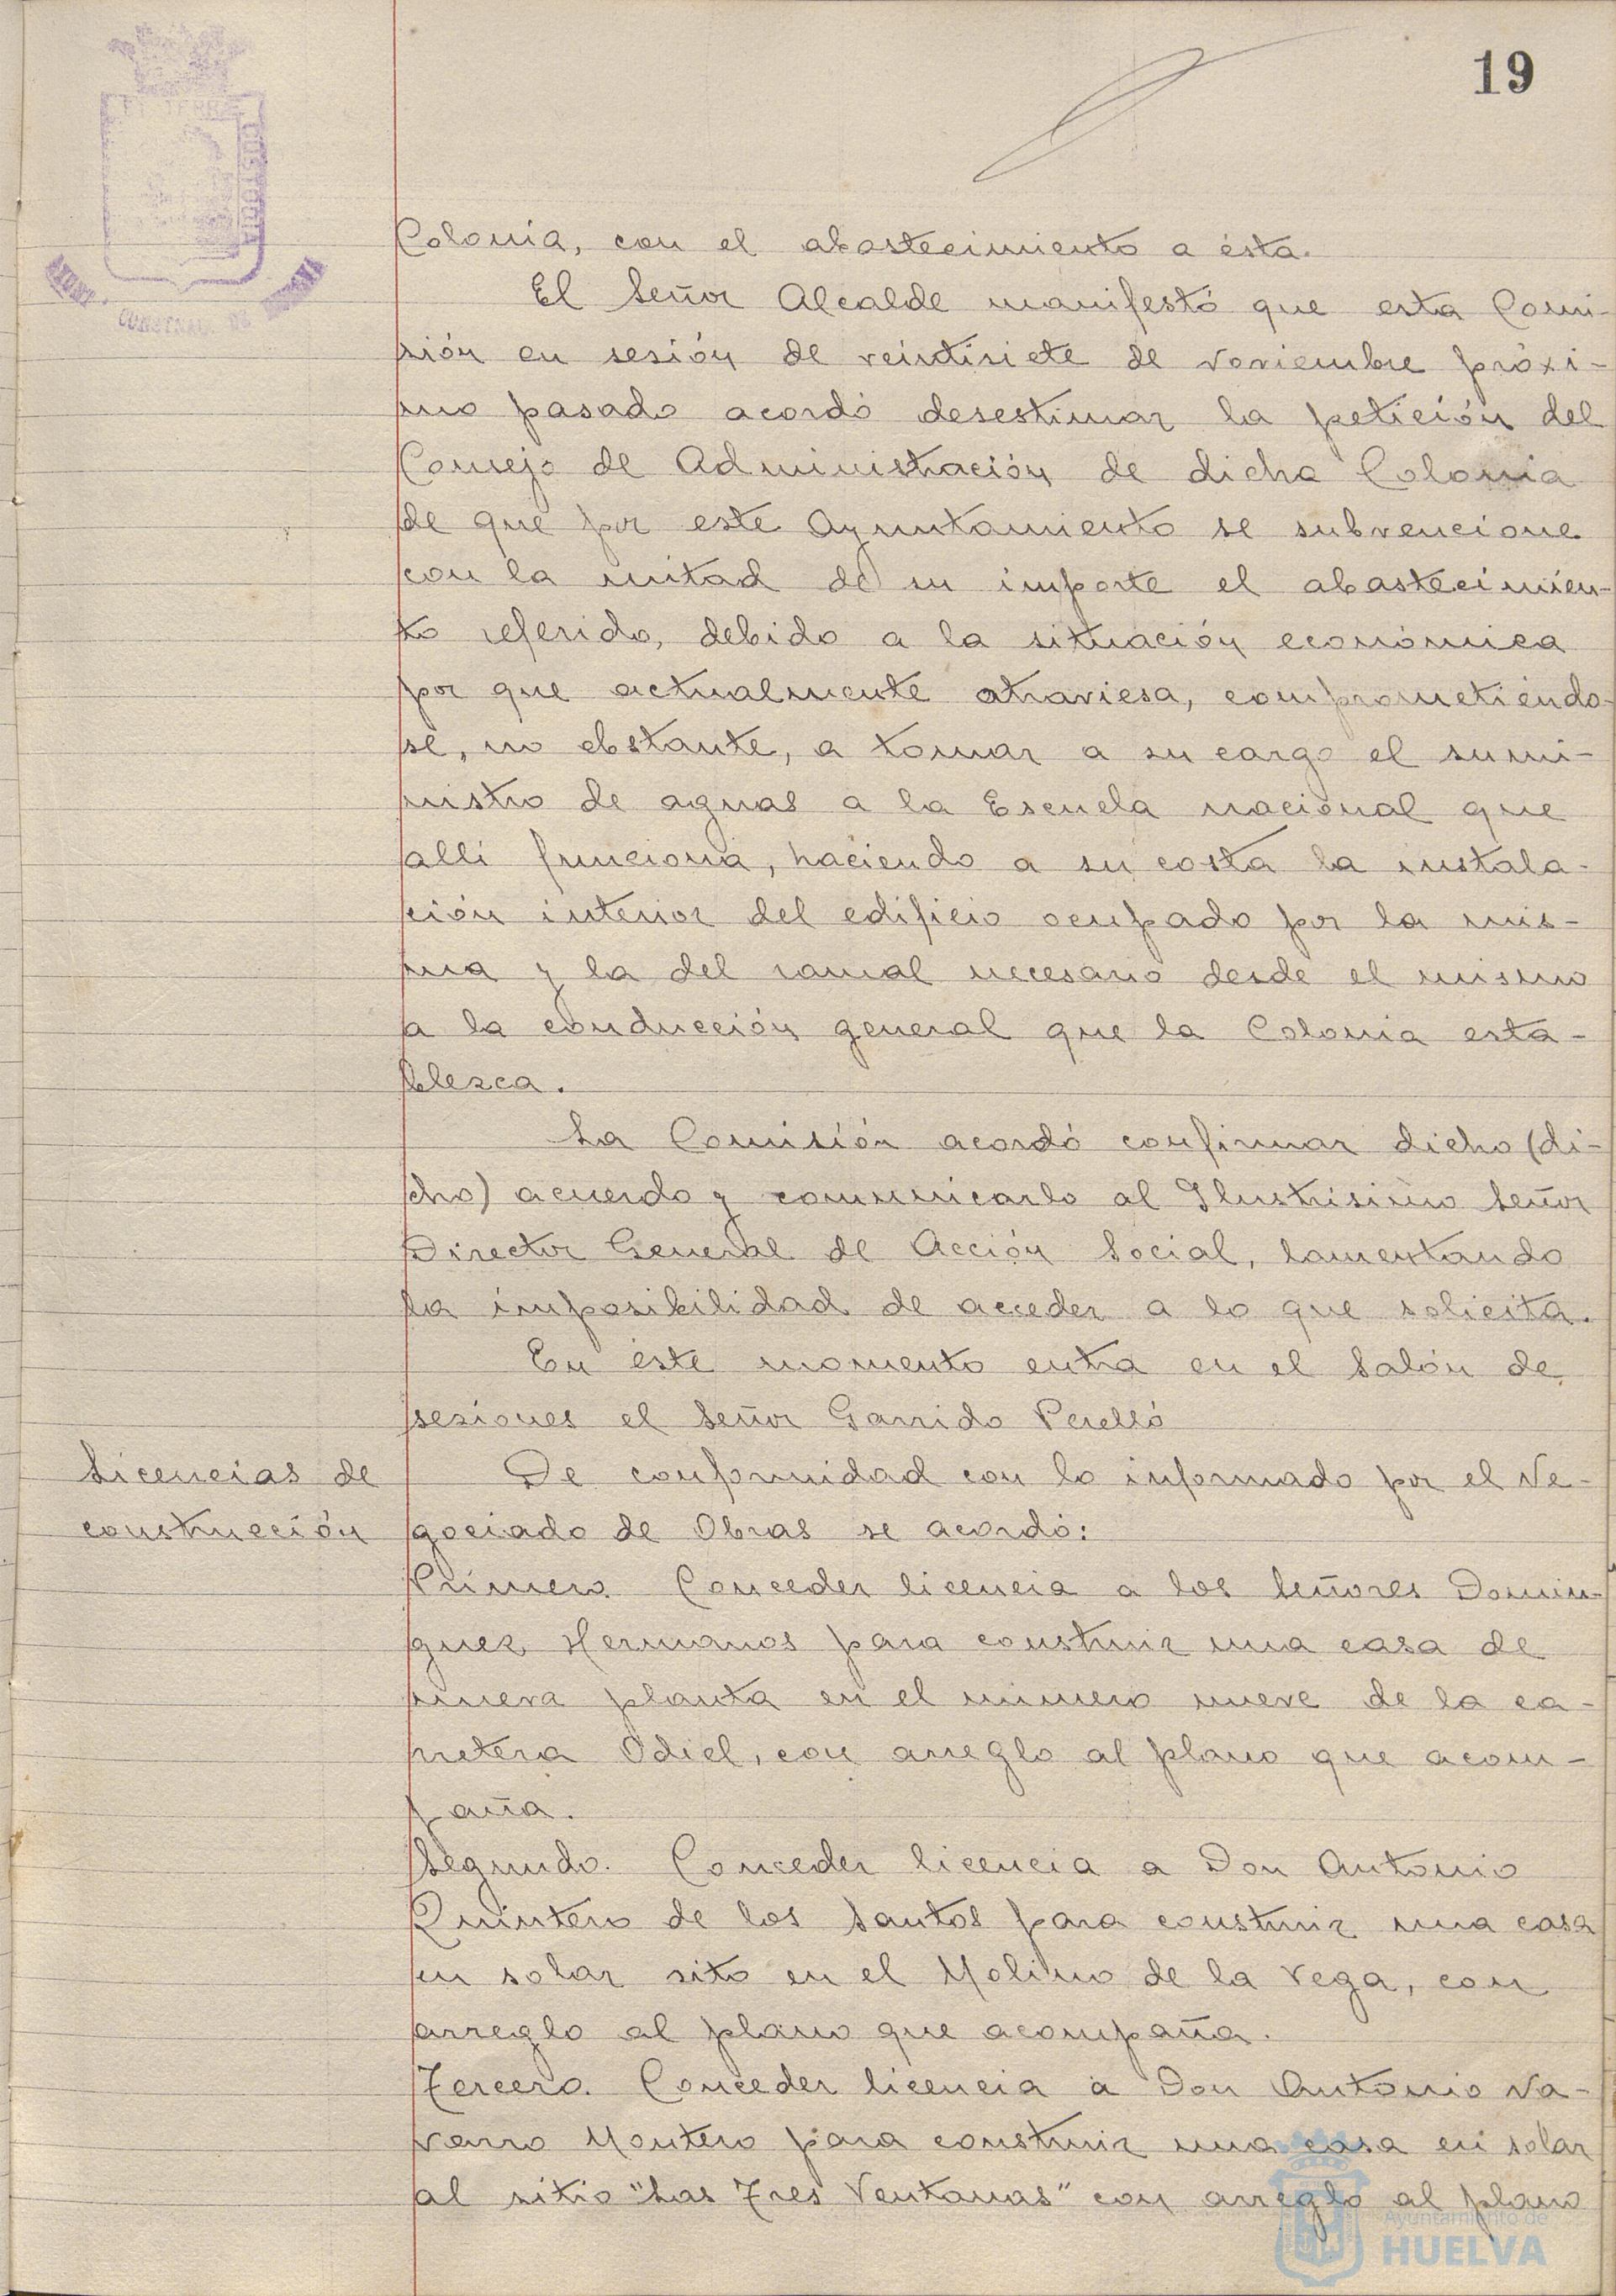 19
PORTUS MARIS ET TERRÆ CUSTODIA
AYUNT. CONSTNAL. DE HUELVA
Colonia, con el abastecimiento a ésta.
El Señor Alcalde manifestó que esta Comi-
sión en sesión de veintisiete de noviembre próxi-
mo pasado acordó desestimar la petición del
Consejo de Administración de dicha Colonia
de que por este Ayuntamiento se subvencione
con la mitad de su importe el abastecimien-
to referido, debido a la situación económica
por que actualmente atraviesa, comprometiéndo-
se, no obstante, a tomar a su cargo el sumi-
nistro de aguas a la Escuela nacional que
allí funciona, haciendo a su costa la instala-
ción interior del edificio ocupado por la mis-
ma y la del ramal necesario desde el mismo
a la conducción general que la Colonia esta-
blezca.
La Comisión acordó confirmar dicho (di-
cho) acuerdo y comunicarlo al Ilustrísimo Señor
Director General de Acción Social, lamentando
la imposibilidad de acceder a lo que solicita.
En éste momento entra en el Salón de
sesiones el Señor Garrido Perelló
Licencias de
construcción
De conformidad con lo informado por el Ne-
gociado de Obras se acordó:
Primero. Conceder licencia a los Señores Domin-
guez Hermanos para construir una casa de
nueva planta en el número nueve de la ca-
rretera Odiel, con arreglo al plano que acom-
paña.
Segundo. Conceder licencia a Don Antonio
Quintero de los Santos para construir una casa
en solar sito en el Molino de la Vega, con
arreglo al plano que acompaña.
Tercero. Conceder licencia a Don Antonio Na-
varro Montero para construir una casa en solar
al sitio "Las Tres Ventanas" con arreglo al plano
Ayuntamiento de
HUELVA